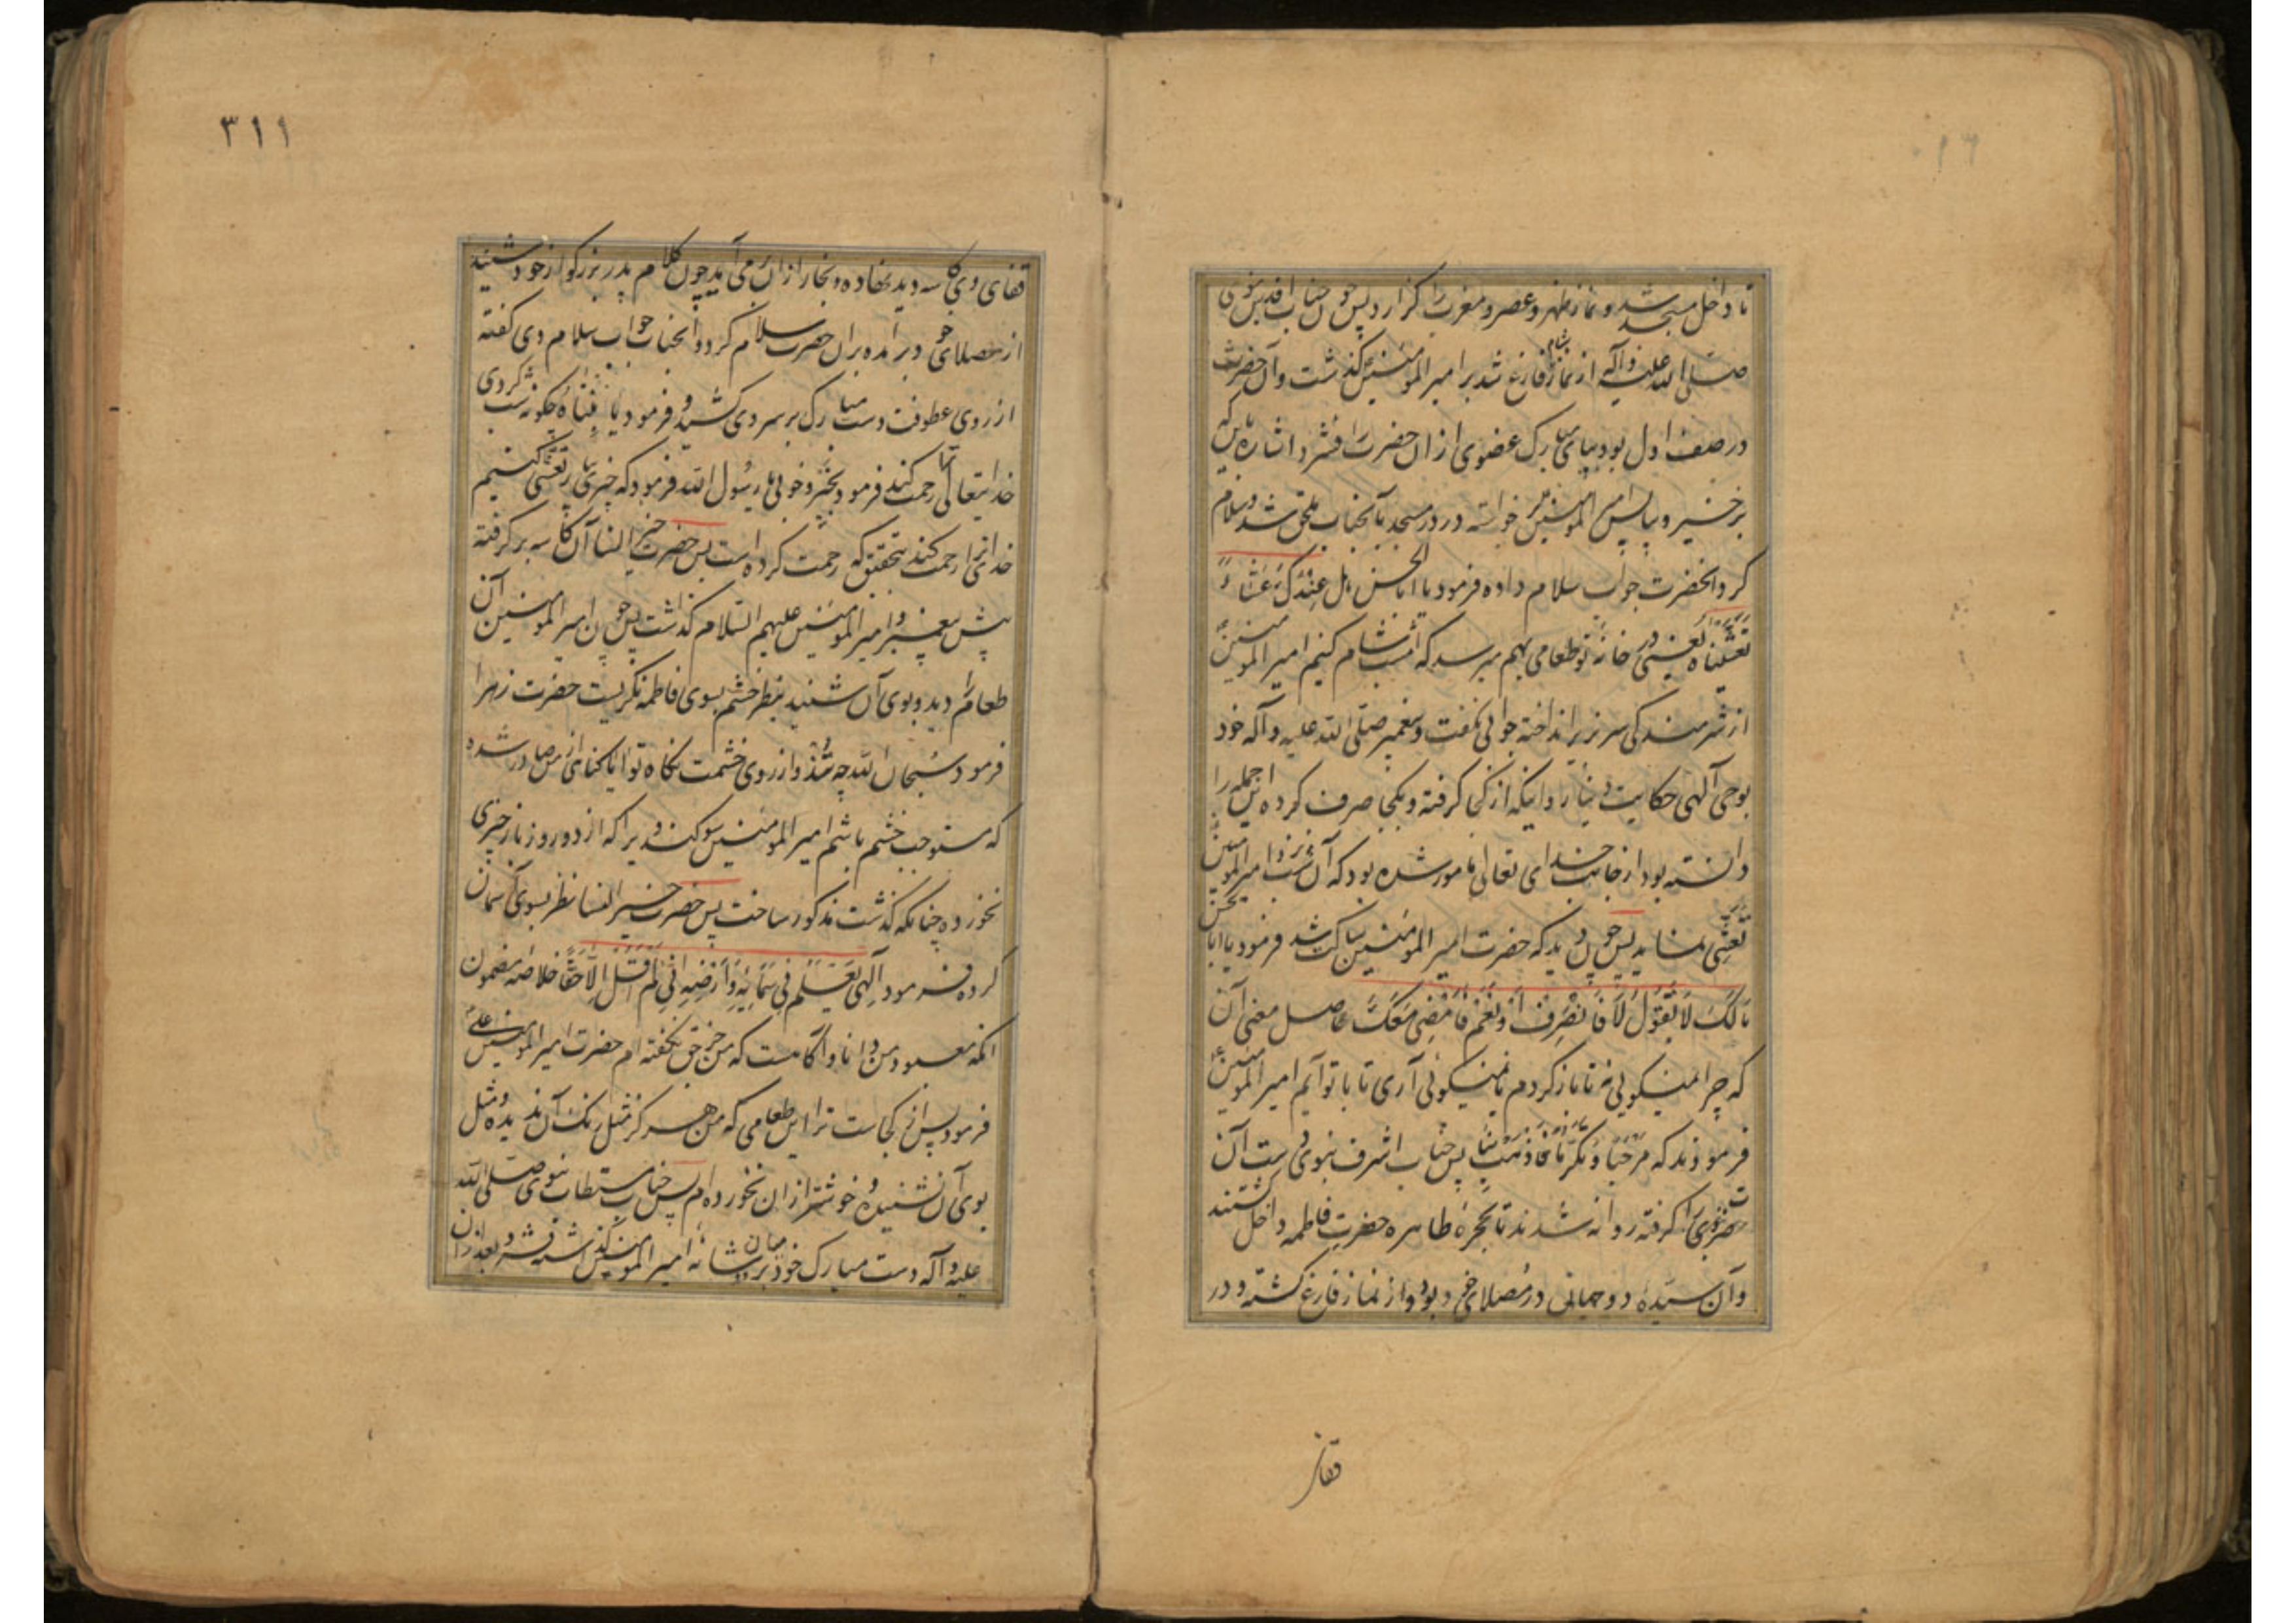 تا داخل مسجد شد و نماز ظهر و عصر و مغرب را گزارد پس چون جناب اقدس نبوی
صلی الله علیه وآله از نماز شام فارغ شد بر امیر المومنین گذشت و آن حضرت
در صف اول بود بپای مبارک عضوی از آن حضرت را فشرد اشاره باینکه
برخیز و بیا پس امیر المومنین برخواسته در در مسجد بآنجناب ملحق شد و سلام
کرد انحضرت جواب سلام داده فرمود یا ابا الحسن هل عِنْدَکَ عَشاءً
تَعَشَّیناهُ یعنی در خانهٔ تو طعامی بهم میرسد که امشب شام کنیم امیر المومنین
از شرمندگی سر بزیر انداخته جوابی نگفت و پیغمبر صلی الله علیه و آله خود
بوحی آلهی حکایت دینار و اینکه از کجا گرفته و بکجا صرف کرده این جمله را
دانسته بود از جانب خدای تعالی مامور شده بود که آن شب نزد امیر المومنین
تَعَشّی نماید پس چون دید که حضرت امیر المومنین ساکت شد فرمود یا ابا الحسن
مٰالَکَ لٰا تَقُولُ لٰا فَاَنْصَرِفَ اَوْ نَعَمْ فَاَمْضِیَ مَعَکَ حاصل معنی آن
که چرا نمیگوئی نه تا باز گردم یا نمیگوئی آری تا با تو آیم امیر المومنین
فرمودند که حُبّاً وَ تَکَرُّماً فَاذْهَبْ بِنٰا پس جناب اشرف نبوی دست آن
حضرت را گرفته روانه شدند تا بحجرهٔ طاهره حضرت فاطمه داخل گشتند
وآن سیدهٔ دوجهانی در مصلای خود بود و از نماز فارغ گشته و در
قفای
٣١١
قفای وی کاسه دید نهاده و بخار از آن می آید چون کلام پدر بزرگوار خود شنید
از مصلای خود برآمده بر آن حضرت سلام کرد و آنجناب جواب سلام وی گفته
از روی عطوفت دست مبارک بر سر وی کشید و فرمود یا بِنْتاهُ چگونه شب کردی
خدایتعالی ترا رحمت کند فرمود بخیر و خوبی یا رسول الله فرمود که چیزی بیار تَعَشّی کنیم
خدای ترا رحمت کند بتحقیق که رحمت کرده است پس حضرت خیر النسا آن کاسه بر گرفته
پیش پیغمبر و امیر المومنین علیهم السلام گذاشت پس چون امیر المومنین آن
طعام را دید و بوی آن شنید بنظر خشم بسوی فاطمه نگریست حضرت زهرا
فرمود سُبحان الله چه تند و از روی خشمست نگاه تو ایا گناهی از من صادر شده
که مستوجب خشم باشم امیر المومنین سوگند ویرا که از دو روز باز چیزی
نخورده چنانکه گذشت مذکور ساخت پس حضرت خیر النسا نظر بسوی آسمان
کرده فرمود اِلٰهی یَعْلَمُ فی سَمٰائِهِ وَ اَرْضِهِ اِنّی لَمْ اَقُلْ اِلّا حَقّاً خلاصه مضمون
آنکه معبود من دانا و آگاهست که من جز حق نگفته ام حضرت امیر المومنین علی
فرمود پس از کجاست ترا این طعامی که من هرگز مثل رنگ آن ندیده و مثل
بوی آن نشنیده و خوشتر از آن نخورده ام پس جناب مستطاب نبوی صلی الله
علیه و آله دست مبارک خود بر میان دو شانهٔ امیر المومنین گذاشته فشرد و بعد از آن